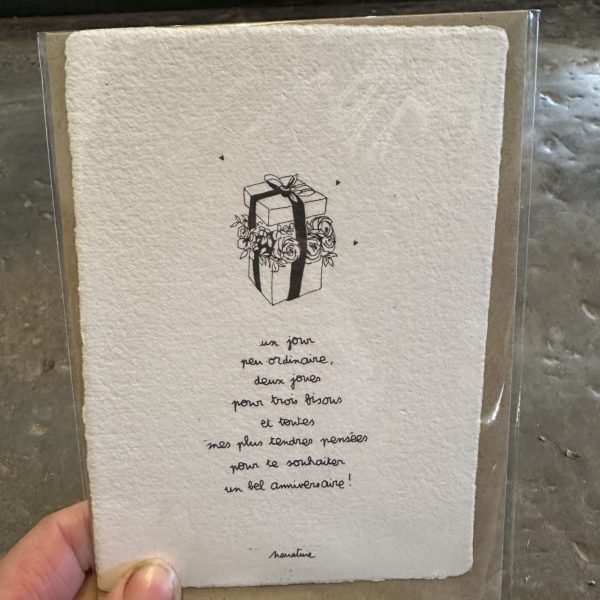 un jour
peu ordinaire,
deux joues
pour trois bisous
et toutes
mes plus tendres pensées
pour te souhaiter
un bel anniversaire !
narrative